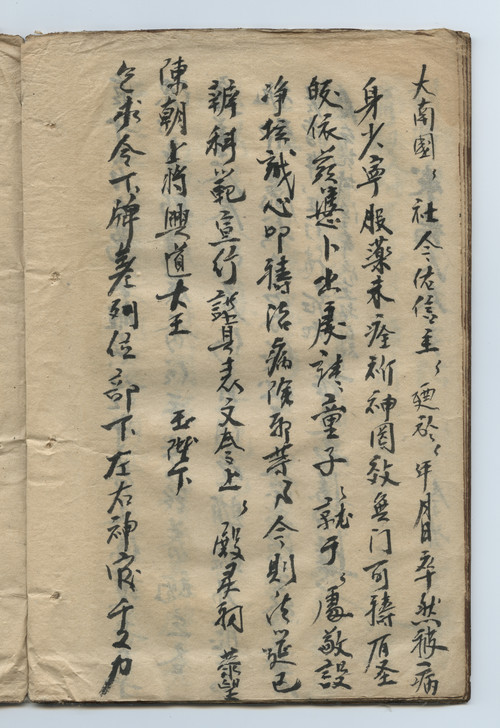 大南國〻社今佑信主〻廼於〻年月日卒然被病
身少寧服藥未痊祈神罔效無门可禱有圣
皈依慈悲卜出處請童子〻就于〻處敬設
净坛誠心叩禱治病除邪等因今則法筵已
辦科範宣行謹具表文奏上〻殿灵祠 恭望
陳朝上將興道大王 玉陛下
乞求令下牌差列位部下左右神